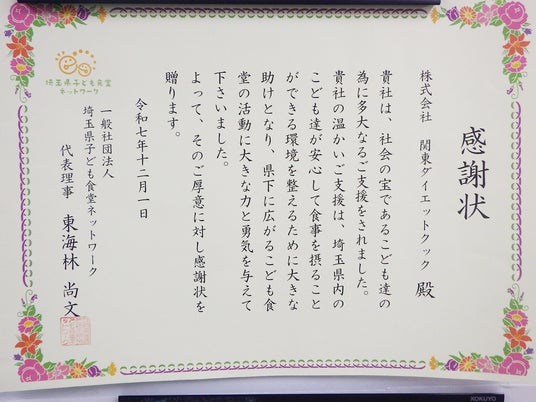 感謝状
株式会社 関東ダイエットクック 殿
貴社は、社会の宝であるこども達の
為に多大なるご支援をされました。
貴社の温かいご支援は、埼玉県内の
こども達が安心して食事を摂ること
ができる環境を整えるために大きな
助けとなり、県下に広がるこども食
堂の活動に大きな力と勇気を与えて
下さいました。
よって、そのご厚意に対し感謝状を
贈ります。
令和七年十二月一日
一般社団法人
埼玉県子ども食堂ネットワーク
代表理事 東海林 尚文
埼玉県子ども食堂
ネットワーク
KOKUYO